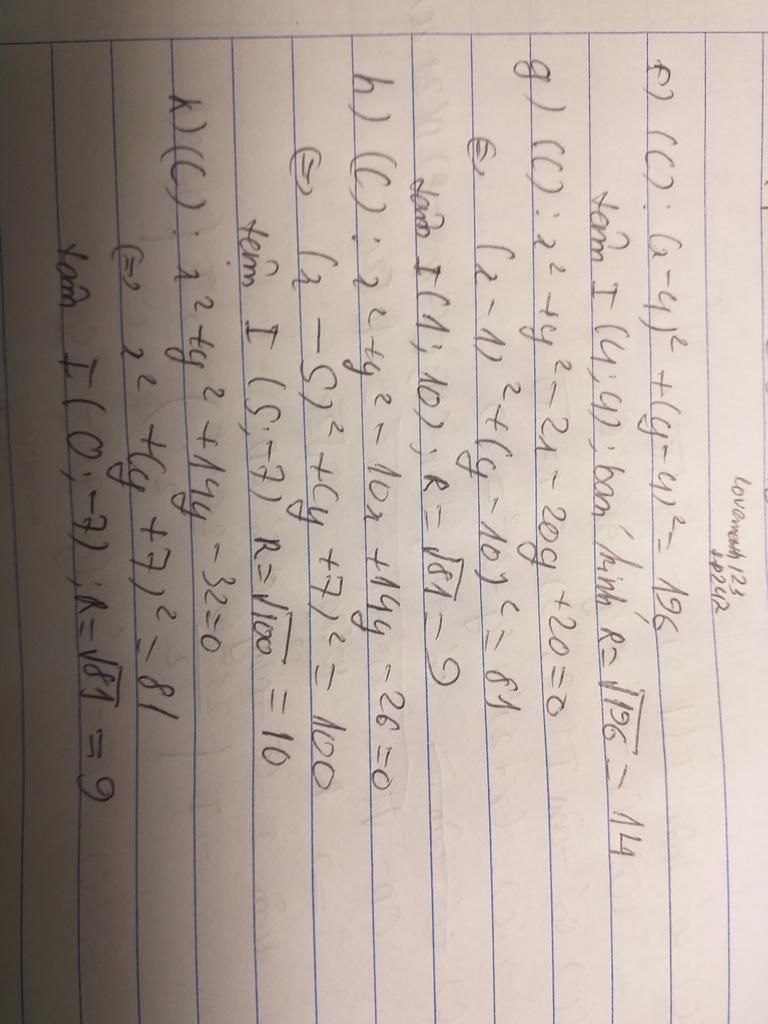 lovemath 123
f) (C): (x-4)² + (y-4)² = 196
tâm I (4; 4); bán kính R = √196 = 14
g) (C): x² + y² - 2x - 20y + 20 = 0
⇔ (x - 1)² + (y - 10)² = 81
tâm I (1; 10); R = √81 = 9
h) (C): x² + y² - 10x + 14y - 26 = 0
⇔ (x - 5)² + (y + 7)² = 100
tâm I (5; -7) R = √100 = 10
k) (C): x² + y² + 14y - 32 = 0
⇔ x² + (y + 7)² = 81
tâm I (0; -7); R = √81 = 9